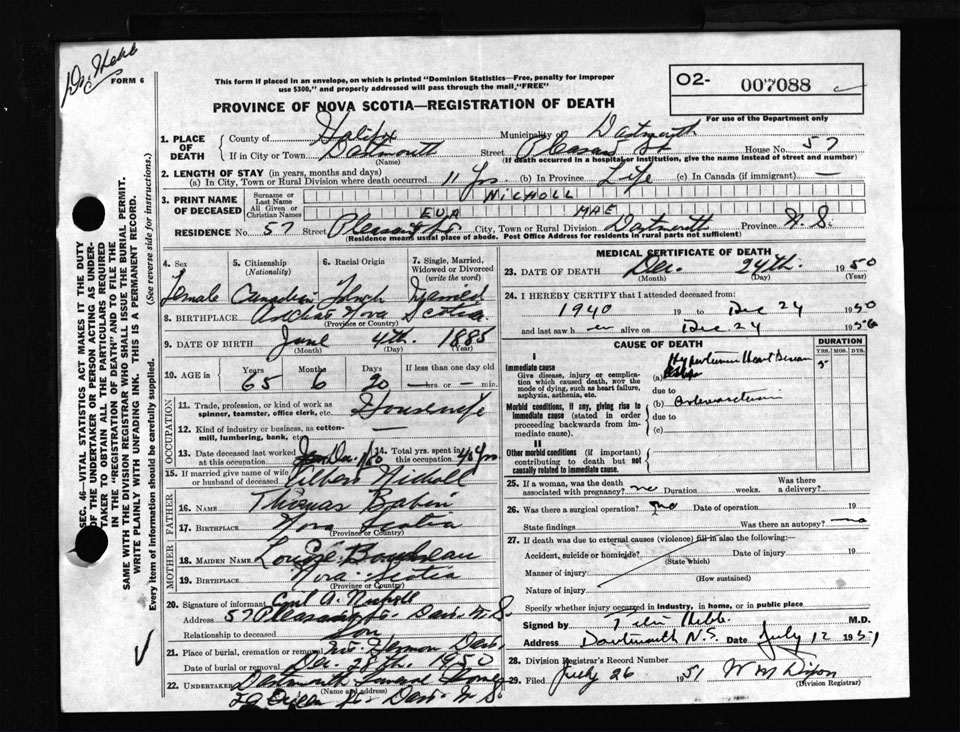 Dr. Hebb
FORM 6
This form if placed in an envelope, on which is printed "Dominion Statistics—Free, penalty for improper
use $300," and properly addressed will pass through the mail "FREE"
PROVINCE OF NOVA SCOTIA—REGISTRATION OF DEATH
O2- 007088
For use of the Department only
1. PLACE OF DEATH County of Halifax Municipality of Dartmouth
If in City or Town Dartmouth Street Pleasant St House No. 57
(Name) (If death occurred in a hospital or institution, give the name instead of street and number)
2. LENGTH OF STAY (in years, months and days)
(a) In City, Town or Rural Division where death occurred 11 Yrs. (b) In Province Life (c) In Canada (if immigrant) —
3. PRINT NAME OF DECEASED Surname or Last Name NICHOLL
All Given or Christian Names EVA MAE
RESIDENCE No. 57 Street Pleasant St. City, Town or Rural Division Dartmouth Province N.S.
(Residence means usual place of abode. Post Office Address for residents in rural parts not sufficient)
4. Sex 5. Citizenship (Nationality) 6. Racial Origin 7. Single, Married, Widowed or Divorced (write the word)
Female Canadian French Married
8. BIRTHPLACE Arichat Nova Scotia
(Province or Country)
9. DATE OF BIRTH June 4th. 1885
(Month) (Day) (Year)
10. AGE in Years Months Days If less than one day old
65 6 20 — hrs. or — min.
OCCUPATION
11. Trade, profession or kind of work as spinner, teamster, office clerk, etc. Housewife
12. Kind of industry or business, as cotton-mill, lumbering, bank, etc. —
13. Date deceased last worked at this occupation Dec. 1/50 14. Total yrs. spent in this occupation 46 Yrs.
15. If married give name of wife or husband of deceased Albert Nicholl
FATHER
16. NAME Thomas Babin
17. BIRTHPLACE Nova Scotia
(Province or Country)
MOTHER
18. MAIDEN NAME Louise Boudreau
19. BIRTHPLACE Nova Scotia
(Province or Country)
20. Signature of informant Cyril A. Nicholl
Address 57 Pleasant St. Dart. N.S.
Relationship to deceased Son
21. Place of burial, cremation or removal Mt. Hermon Dart.
Date of burial or removal Dec. 28th. 1950
22. Undertaker Dartmouth Funeral Home
(Name and address)
Queen St. Dart. N.S.
MEDICAL CERTIFICATE OF DEATH
23. DATE OF DEATH Dec. 24th. 1950
(Month) (Day) (Year)
24. I HEREBY CERTIFY that I attended deceased from:
1940 19 to Dec 24 1950
and last saw her alive on Dec 24 1950
CAUSE OF DEATH
DURATION
YRS. MOS. DYS.
I
Immediate cause
Give disease, injury or complication which caused death, NOT the mode of dying, such as heart failure, asphyxia, asthenia, etc.
(a) Hypertensive Heart Disease 5
due to
(b)
Morbid conditions, if any, giving rise to immediate cause (stated in order proceeding backwards from immediate cause).
due to
(c)
II
Other morbid conditions (if important) contributing to death but not causally related to immediate cause.
25. If a woman, was the death associated with pregnancy? no Duration weeks. Was there a delivery?
26. Was there a surgical operation? no Date of operation 19
State findings Was there an autopsy? no
27. If death was due to external causes (violence) fill in also the following:—
Accident, suicide or homicide? Date of injury 19
(State which)
Manner of injury
(How sustained)
Nature of injury
Specify whether injury occurred in industry, in home, or in public place
Signed by Hebb M.D.
Address Dartmouth N.S. Date July 12 1951
28. Division Registrar's Record Number
29. Filed July 26 1951 W M Dixon
(Division Registrar)
SEC. 46—VITAL STATISTICS ACT MAKES IT THE DUTY
OF THE UNDERTAKER OR PERSON ACTING AS UNDER-
TAKER TO OBTAIN ALL THE PARTICULARS REQUIRED
IN THE "REGISTRATION OF DEATH" AND TO FILE THE
SAME WITH THE DIVISION REGISTRAR WHO SHALL ISSUE THE BURIAL PERMIT.
WRITE PLAINLY WITH UNFADING INK. THIS IS A PERMANENT RECORD.
Every item of information should be carefully supplied. (See reverse side for instructions.)